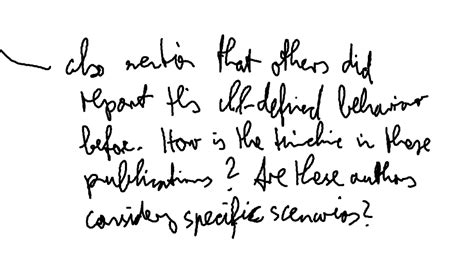 also mention that others did
report this ill-defined behaviour
before. How is the timeline in these
publications? Are these authors
considering specific scenarios?